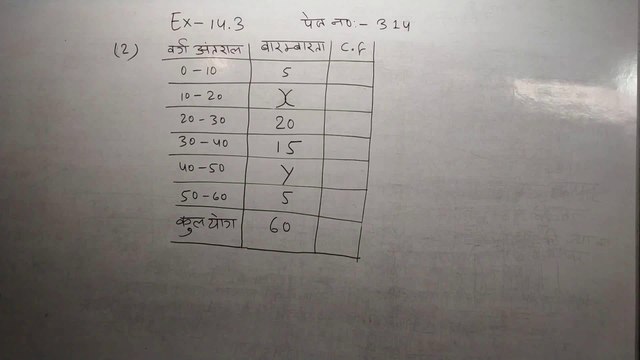 Ex-14.3 पेज नं०:- 314
(2) वर्ग अंतराल बारम्बारता C.F
0-10 5
10-20 X
20-30 20
30-40 15
40-50 y
50-60 5
कुल योग 60